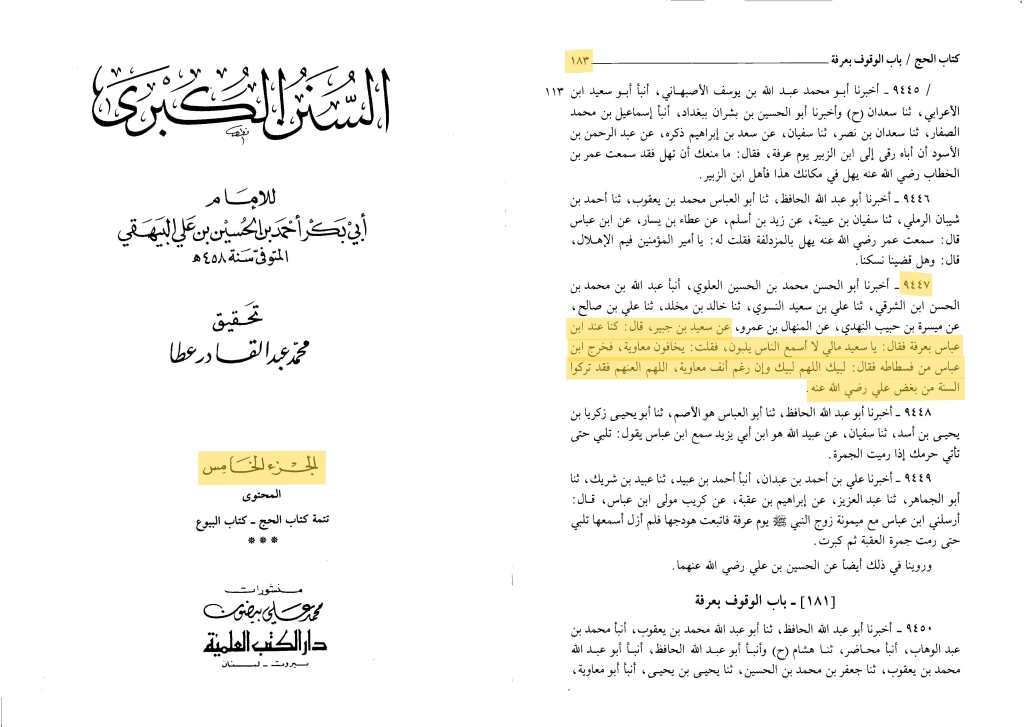 السنن الكبرى
للإمام
أبي بكر أحمد بن الحسين بن علي البيهقي
المتوفى سنة ٤٥٨ هـ
تحقيق
محمد عبد القادر عطا
الجزء الخامس
المحتوى
تتمة كتاب الحج ـ كتاب البيوع
***
منشورات
محمد علي بيضون
دار الكتب العلمية
بيروت - لبنان
كتاب الحج / باب الوقوف بعرفة ١٨٣
/ ٩٤٤٥ ـ أخبرنا أبو محمد عبد الله بن يوسف الأصبهاني، أنبأ أبو سعيد ابن ١١٣
الأعرابي، ثنا سعدان (ح) وأخبرنا أبو الحسين بن بشران ببغداد، أنبأ إسماعيل بن محمد
الصفار، ثنا سعدان بن نصر، ثنا سفيان، عن سعد بن إبراهيم ذكره، عن عبد الرحمن بن
الأسود أن أباه رقى إلى ابن الزبير يوم عرفة، فقال: ما منعك أن تهل فقد سمعت عمر بن
الخطاب رضي الله عنه يهل في مكانك هذا فأهل ابن الزبير.
٩٤٤٦ ـ أخبرنا أبو عبد الله الحافظ، ثنا أبو العباس محمد بن يعقوب، ثنا أحمد بن
شيبان الرملي، ثنا سفيان بن عيينة، عن زيد بن أسلم، عن عطاء بن يسار، عن ابن عباس
قال: سمعت عمر رضي الله عنه يهل بالمزدلفة فقلت له: يا أمير المؤمنين فيم الإهلال،
قال: وهل قضينا نسكنا.
٩٤٤٧ ـ أخبرنا أبو الحسن محمد بن الحسين العلوي، أنبأ عبد الله بن محمد بن
الحسن ابن الشرقي، ثنا علي بن سعيد النسوي، ثنا خالد بن مخلد، ثنا علي بن صالح،
عن ميسرة بن حبيب النهدي، عن المنهال بن عمرو، عن سعيد بن جبير، قال: كنا عند ابن
عباس بعرفة فقال: يا سعيد مالي لا أسمع الناس يلبون، فقلت: يخافون معاوية، فخرج ابن
عباس من فسطاطه فقال: لبيك اللهم لبيك وإن رغم أنف معاوية، اللهم العنهم فقد تركوا
السنة من بغض علي رضي الله عنه.
٩٤٤٨ ـ أخبرنا أبو عبد الله الحافظ، ثنا أبو العباس هو الأصم، ثنا أبو يحيى زكريا بن
يحيى بن أسد، ثنا سفيان، عن عبيد الله هو ابن أبي يزيد سمع ابن عباس يقول: تلبي حتى
تأتي حرمك إذا رميت الجمرة.
٩٤٤٩ ـ أخبرنا علي بن أحمد بن عبدان، أنبأ أحمد بن عبيد، ثنا عبيد بن شريك، ثنا
أبو الجماهر، ثنا عبد العزيز، عن إبراهيم بن عقبة، عن كريب مولى ابن عباس، قال:
أرسلني ابن عباس مع ميمونة زوج النبي ﷺ يوم عرفة فاتبعت هودجها فلم أزل أسمعها تلبي
حتى رمت جمرة العقبة ثم كبرت.
وروينا في ذلك أيضاً عن الحسين بن علي رضي الله عنهما.
[١٨١] ـ باب الوقوف بعرفة
٩٤٥٠ ـ أخبرنا أبو عبد الله الحافظ، ثنا أبو عبد الله محمد بن يعقوب، أنبأ محمد بن
عبد الوهاب، أنبأ محاضر، ثنا هشام (ح) وأنبأ أبو عبد الله الحافظ، أنبأ أبو عبد الله
محمد بن يعقوب، ثنا جعفر بن محمد بن الحسين، ثنا يحيى بن يحيى، أنبأ أبو معاوية،